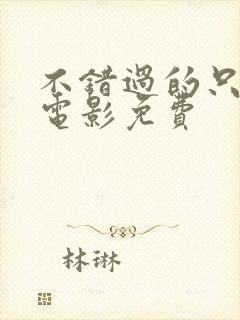 不错過的只
電影免費
林琳